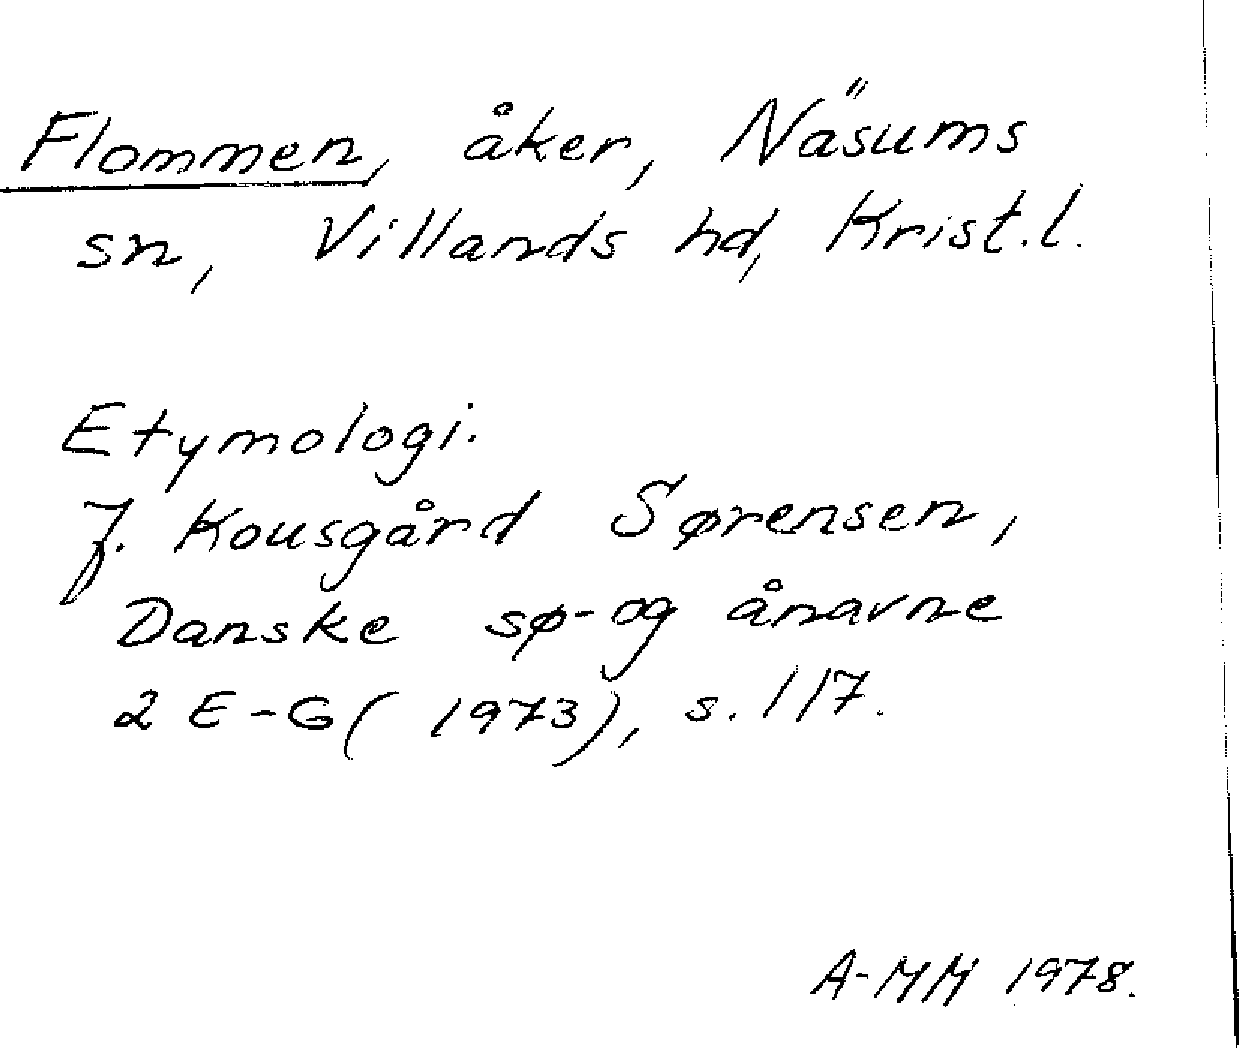 Flommen, åker, Näsums
sn, Villands hd, Krist. l.
Etymologi.
J. Kousgård Sørensen,
Danske sø- og ånavne
2 E-G (1973), s. 117.
A-MM 1978.